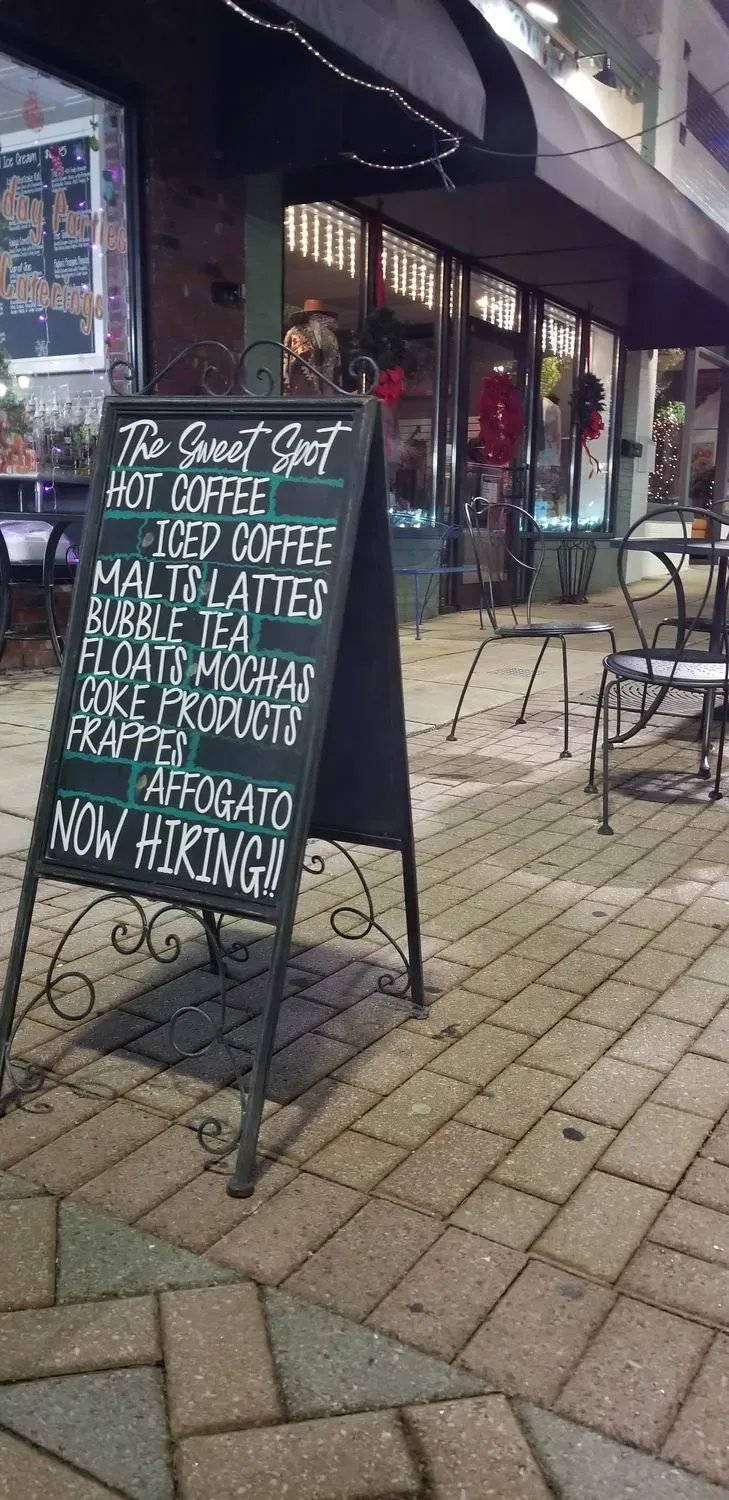 The Sweet Spot
HOT COFFEE
ICED COFFEE
MALTS LATTES
BUBBLE TEA
FLOATS MOCHAS
COKE PRODUCTS
FRAPPES
AFFOGATO
NOW HIRING!!
Ice Cream
day Parties
Caterings